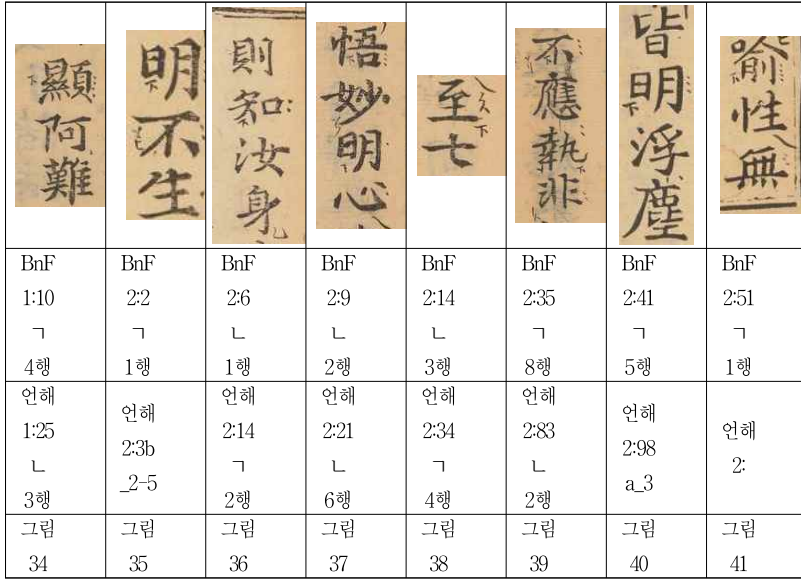 顯阿難
明不生
則知汝身
悟妙明心
至七
不應執非
皆明浮塵
喻性無
BnF
1:10
ㄱ
4행
BnF
2:2
ㄱ
1행
BnF
2:6
ㄴ
1행
BnF
2:9
ㄴ
2행
BnF
2:14
ㄴ
3행
BnF
2:35
ㄱ
8행
BnF
2:41
ㄱ
5행
BnF
2:51
ㄱ
1행
언해
1:25
ㄴ
3행
언해
2:3b
_2-5
언해
2:14
ㄱ
2행
언해
2:21
ㄴ
6행
언해
2:34
ㄱ
4행
언해
2:83
ㄴ
2행
언해
2:98
a_3
언해
2:
그림
34
그림
35
그림
36
그림
37
그림
38
그림
39
그림
40
그림
41